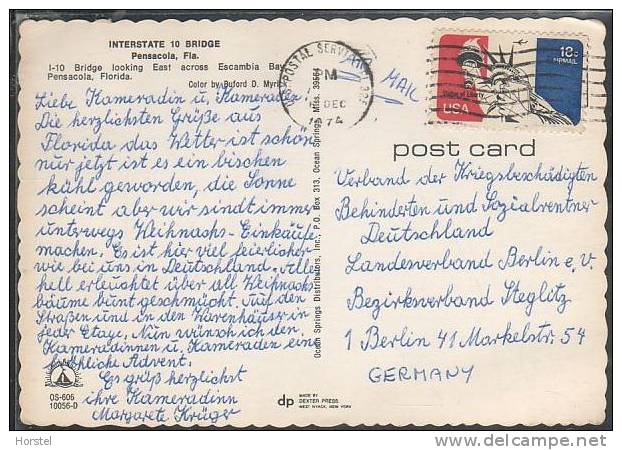 INTERSTATE 10 BRIDGE
Pensacola, Fla.
I-10 Bridge looking East across Escambia Bay,
Pensacola, Florida.
Color by Buford D. Myrick
Liebe Kameradin u, Kameraden!
Die herzlichsten Grüße aus
Florida das Wetter ist schön
nur jetzt ist es ein bischen
kühl geworden, die Sonne
scheint aber wir sindt immer
unterwegs Weihnachs-Einkäufe
machen. Es ist hier viel feierlicher
wie bei uns in Deutschland. Alle
hell erleuchtet über all Weihnachs
bäume bunt geschmückt. Auf den
Straßen und in den Warenhäuser in
jeder Etage. Nun wünsch ich den
Kameradinnen u. Kameraden eine
fröhliche Advent.
Es grüß herzlichst
ihre Kameradinn
Margarete Krüger
OS-606
10056-D
Ocean Springs Distributors, Inc., P.O. Box 313, Ocean Springs, Miss. 39564
POSTAL SERVICE
PM
DEC
1974
AIR MAIL
18c
AIRMAIL
Statue of Liberty
USA
post card
Verband der Kriegsbeschädigten
Behinderten und Sozialrentner
Deutschland
Landesverband Berlin e.V.
Bezirksverband Steglitz
1 Berlin 41 Markelstr. 54
GERMANY
dp
MADE BY
DEXTER PRESS
WEST NYACK, NEW YORK
Horstel
www.delcampe.net